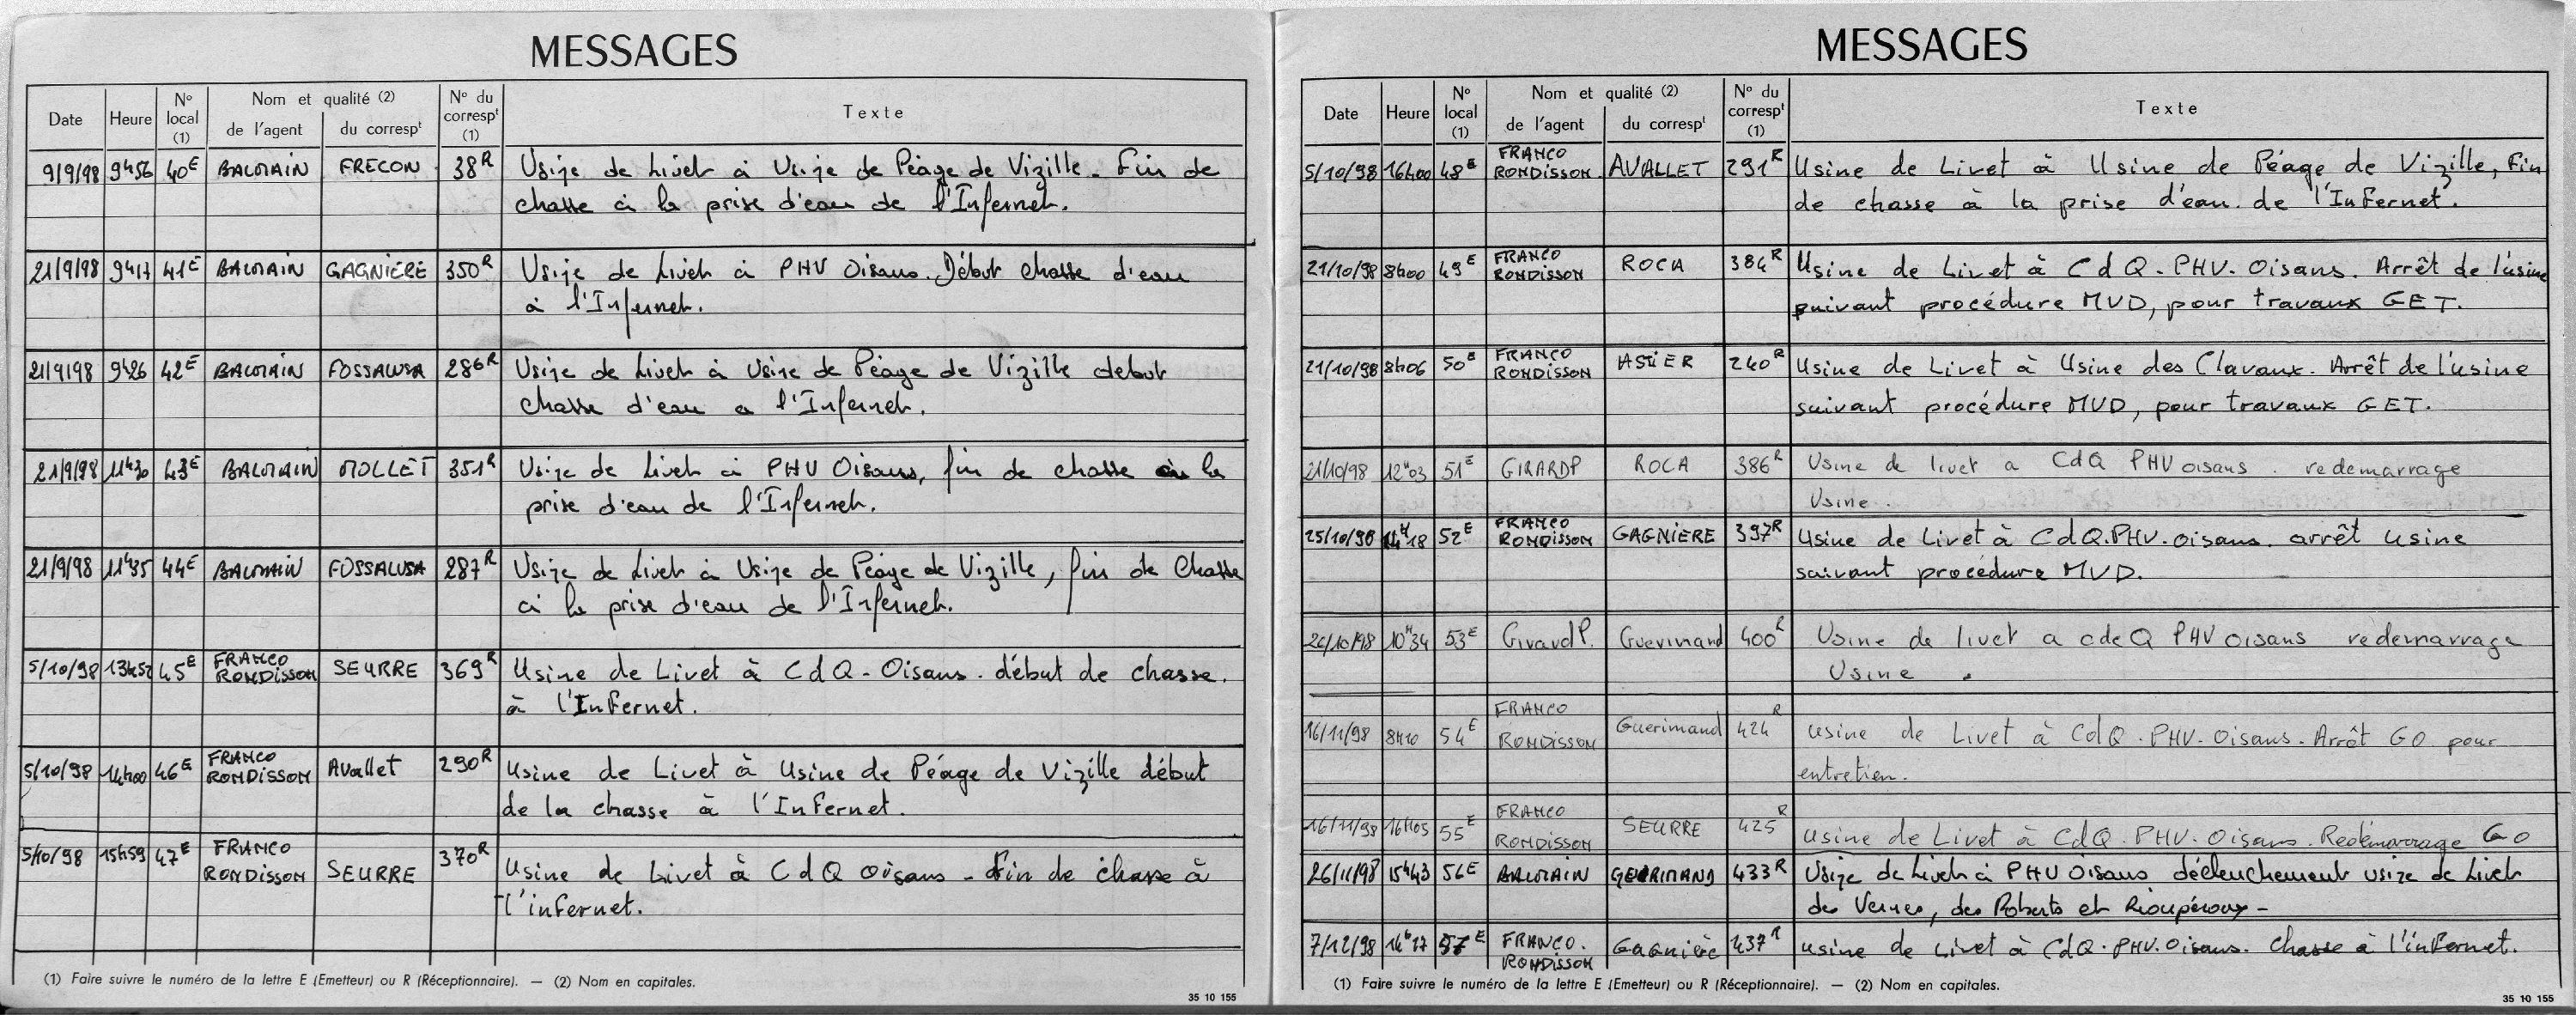 MESSAGES
Date Heure N° local (1) Nom et qualité (2) de l'agent du correspt N° du correspt (1) Texte
9/9/98 9h56 40E BALMAIN FRECON 38R Usine de Livet à Usine de Péage de Vizille. Fin de
chasse à la prise d'eau de l'Infernet.
21/9/98 9h17 41E BALMAIN GAGNIERE 350R Usine de Livet à PHV Oisans. Début chasse d'eau
à l'Infernet.
21/9/98 9h26 42E BALMAIN FOSSALUSA 286R Usine de Livet à Usine de Péage de Vizille debut
chasse d'eau a l'Infernet.
21/9/98 11h30 43E BALMAIN MOLLET 351R Usine de Livet à PHV Oisans, fin de chasse à la
prise d'eau de l'Infernet.
21/9/98 11h35 44E BALMAIN FOSSALUSA 287R Usine de Livet à Usine de Péage de Vizille, fin de chasse
à la prise d'eau de l'Infernet.
5/10/98 13h52 45E FRANCO RONDISSON SEURRE 369R Usine de Livet à CdQ - Oisans. début de chasse.
à l'Infernet.
5/10/98 14h00 46E FRANCO RONDISSON AVallet 290R Usine de Livet à Usine de Péage de Vizille début
de la chasse à l'Infernet.
5/10/98 15h59 47E FRANCO RONDISSON SEURRE 370R Usine de Livet à CdQ Oisans - Fin de chasse à
l'infernet.
(1) Faire suivre le numéro de la lettre E (Emetteur) ou R (Réceptionnaire). — (2) Nom en capitales.
35 10 155
MESSAGES
Date Heure N° local (1) Nom et qualité (2) de l'agent du correspt N° du correspt (1) Texte
5/10/98 16h00 48E FRANCO RONDISSON AVALLET 291R Usine de Livet à Usine de Péage de Vizille, Fin
de chasse à la prise d'eau. de l'Infernet.
21/10/98 8h00 49E FRANCO RONDISSON ROCA 384R Usine de Livet à CdQ. PHV. Oisans. Arrêt de l'usine
suivant procédure MVD, pour travaux GET.
21/10/98 8h06 50E FRANCO RONDISSON ASTIER 240R Usine de Livet à Usine des Clavaux. Arrêt de l'usine
suivant procédure MVD, pour travaux GET.
21/10/98 12H03 51E GIRARDP ROCA 386R Usine de livet a CdQ PHV oisans. redemarrage
Usine.
25/10/98 14H18 52E FRANCO RONDISSON GAGNIERE 397R Usine de Livet à CdQ.PHV.oisans. arrêt usine
suivant procédure MVD.
26/10/98 10H34 53E GirardP. Guerimand 400R Usine de livet a cdeQ PHV oisans redemarrage
Usine.
16/11/98 8h10 54E FRANCO RONDISSON Guerimand 424R usine de Livet à CdQ. PHV. Oisans. Arrêt GO pour
entretien.
16/11/98 16h05 55E FRANCO RONDISSON SEURRE 425R usine de Livet à CdQ. PHV. Oisans. Redémarrage GO
26/11/98 15h43 56E BALMAIN GUERIMAND 433R Usine de Livet à PHV Oisans déclenchement usine de Livet
des Vernes, des Roberts et Rioupéroux -
7/12/98 14h17 57E FRANCO. RONDISSON Gagnière 437R usine de Livet à CdQ. PHV. Oisans. Chasse à l'infernet.
(1) Faire suivre le numéro de la lettre E (Emetteur) ou R (Réceptionnaire). — (2) Nom en capitales.
35 10 155